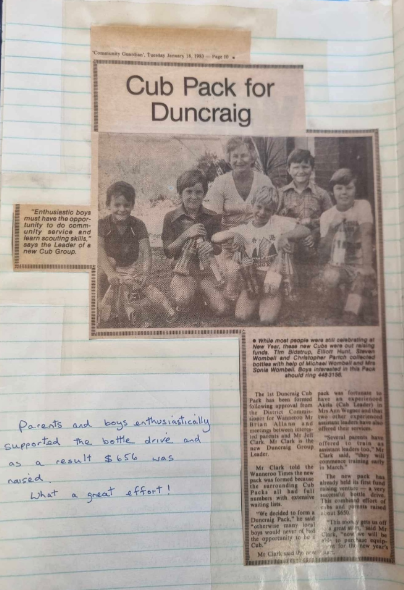 'Community Guardian', Tuesday January 18, 1983 — Page
Cub Pack for
Duncraig
"Enthusiastic boys
must have the oppor-
tunity to do com-
munity service and
learn scouting skills,"
says the Leader of a
new Cub Group.
● While most people were still celebrating at
New Year, these new Cubs were out raising
funds. Tim Bidstrup, Elliott Hunt, Steven
Wombell and Christopher collected
bottles with help of Michael Wombell and Mrs
Sonia Wombell. Boys interested in this Pack
should ring
Parents and boys enthusiastically
supported the bottle drive and
as a result $656 was
raised.
What a great effort!
The 1st Duncraig Cub
Pack has been formed
following approval from
the District Commis-
sioner for Wanneroo Mr
Brian Allison and
meetings between interes-
ted parents and Mr Jeff
Clark. Mr Clark is the
new Duncraig Group
Leader.
Mr Clark told the
Wanneroo Times the new
pack was formed because
the surrounding Cub
Packs all had full
numbers with extensive
waiting lists.
"We decided to form a
Duncraig Pack," he said
"otherwise many local
boys would never
the opportunity to be a
Cub."
Mr Clark said the
pack was fortunate to
have an experienced
Akela (Cub Leader) in
Mrs Ann and
two other experienced
assistant leaders have also
offered their services.
"Several parents have
offered to train as
assistant leaders too," Mr
Clark said, "they will
commence training early
in March."
The new pack has
already held its first fund
raising venture — a most
successful bottle drive.
This combined effort of
cubs and parents raised
over $650.
said Mr
Clark, "now we will be
able to purchase equip-
ment for the new year's